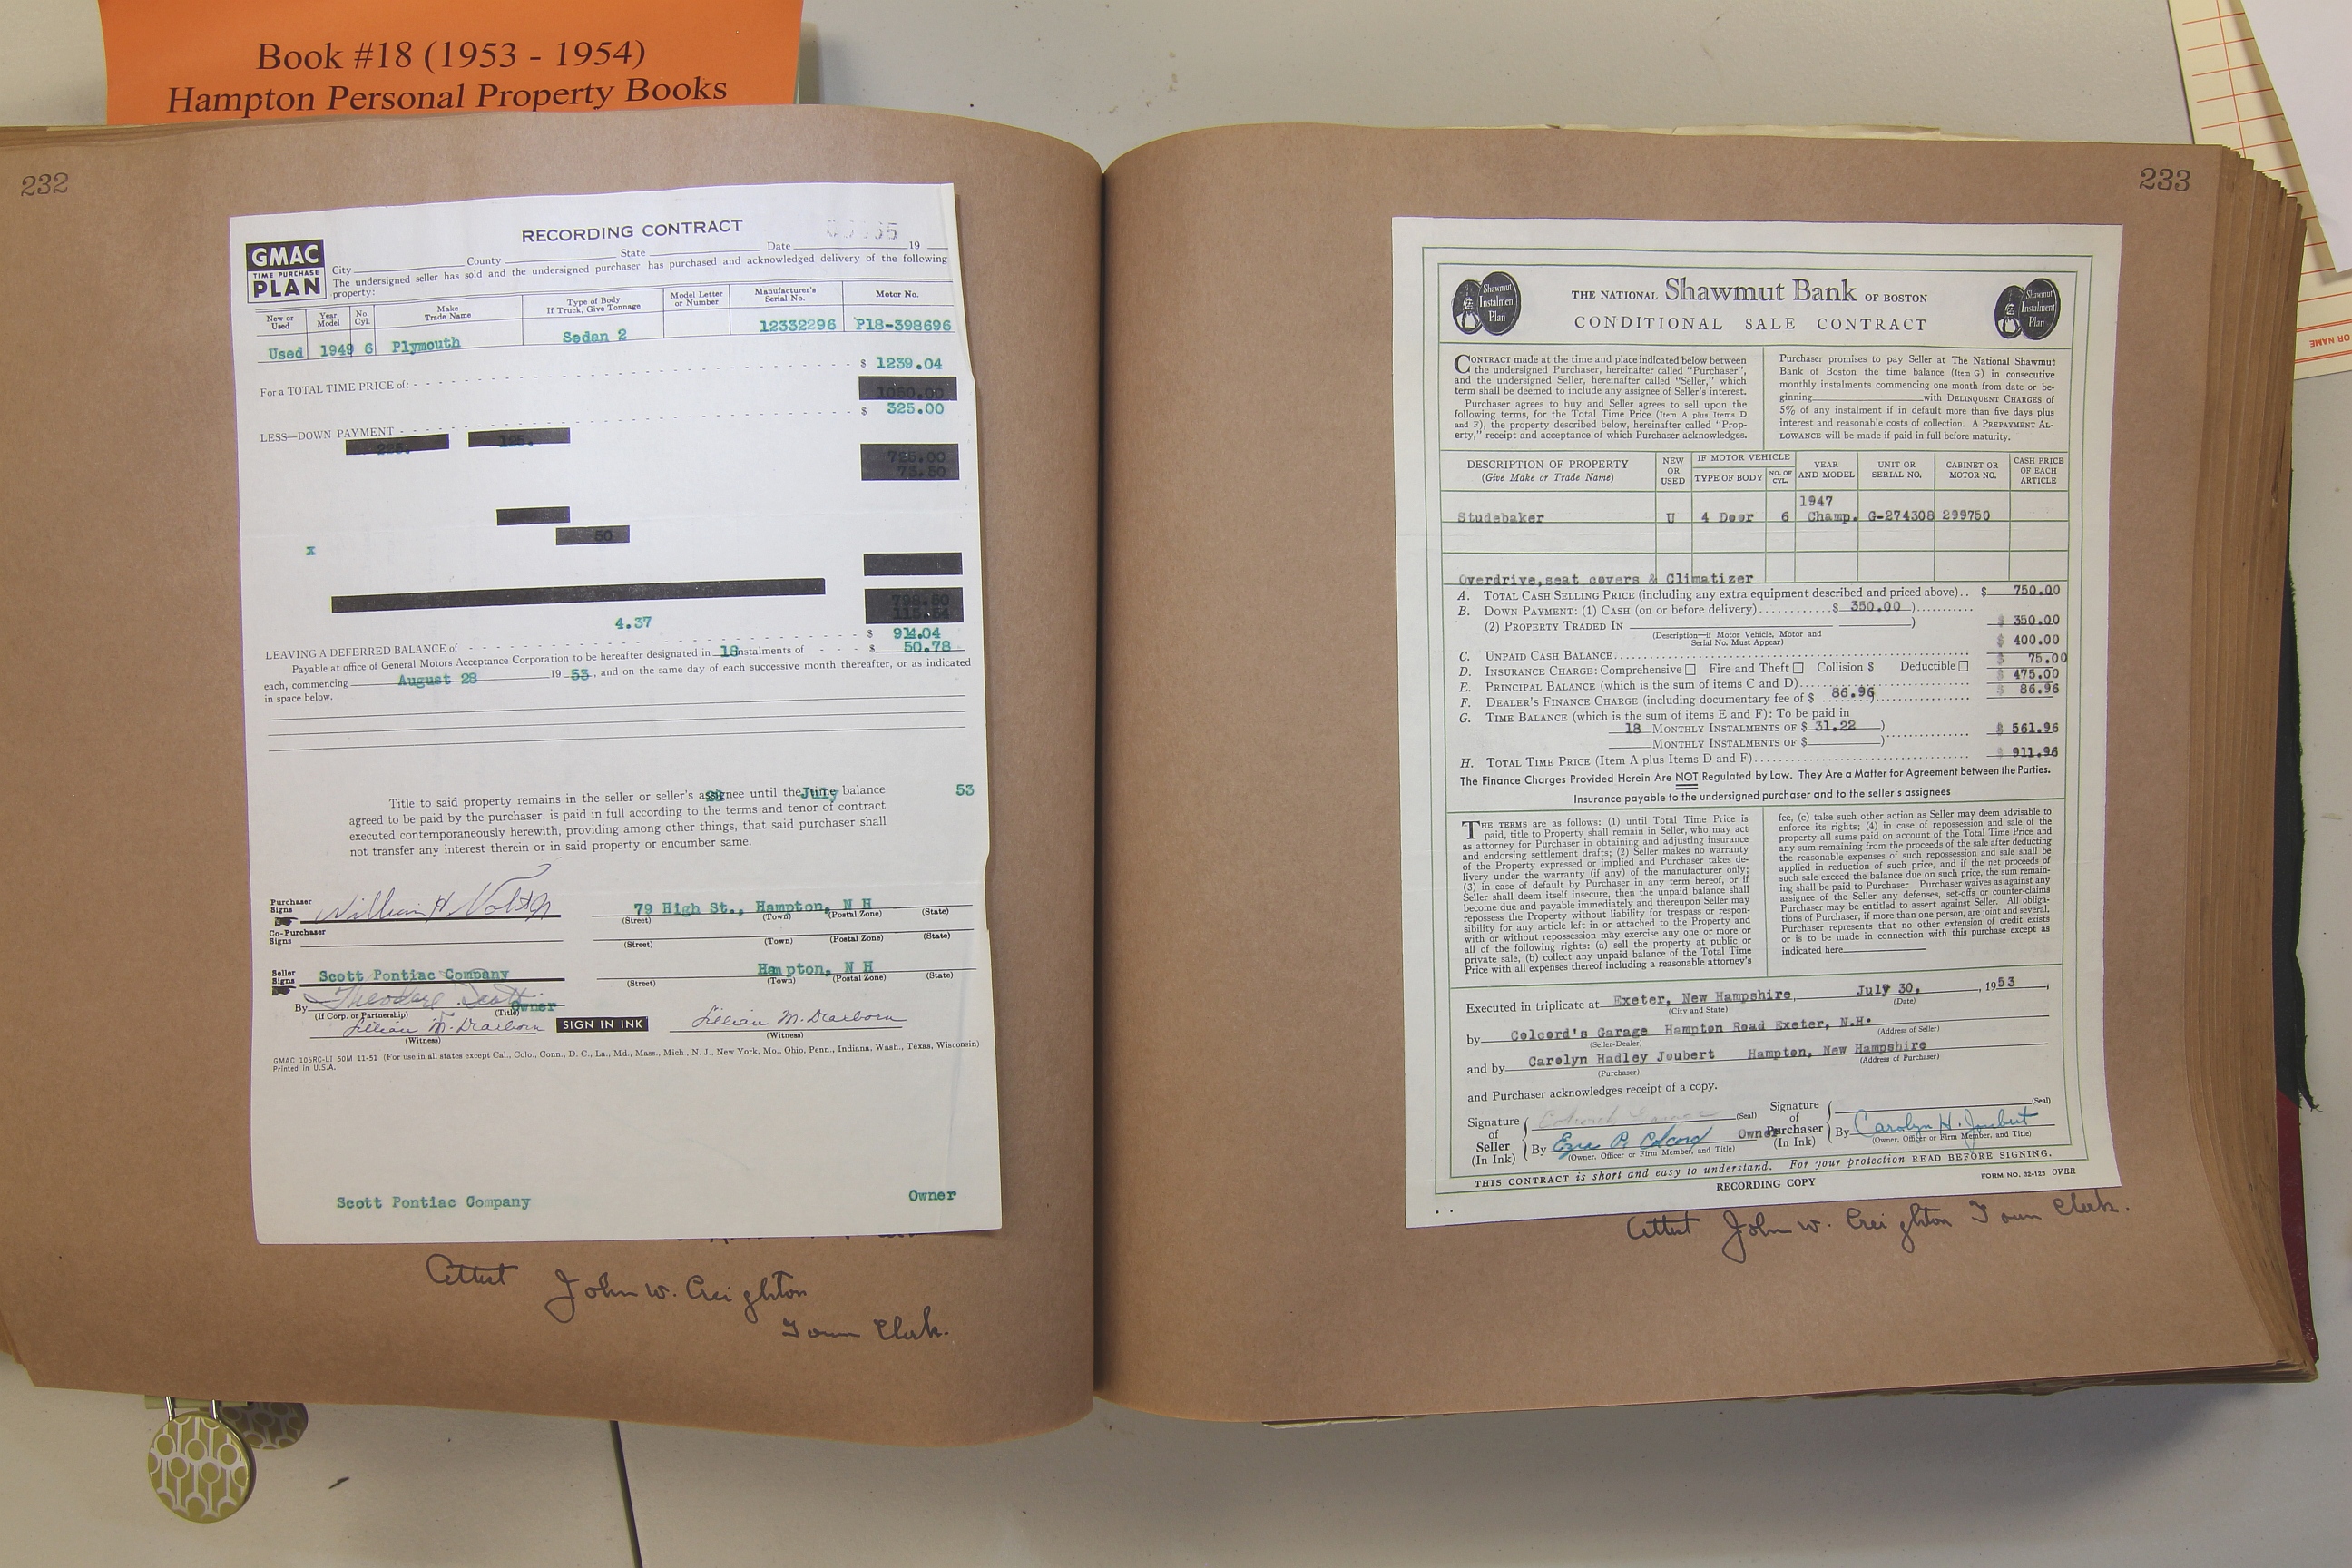 Book #18 (1953 - 1954)
Hampton Personal Property Books
232
RECORDING CONTRACT
GMAC
TIME PURCHASE
PLAN
City County State Date 19
The undersigned seller has sold and the undersigned purchaser has purchased and acknowledged delivery of the following
property:
New or Used Year Model No. Cyl. Make Trade Name Type of Body If Truck, Give Tonnage Model Letter or Number Manufacturer's Serial No. Motor No.
Used 1949 6 Plymouth Sedan 2 12332296 P18-398696
For a TOTAL TIME PRICE of: $ 1239.04
1050.00
LESS—DOWN PAYMENT $ 325.00
725.00
73.50
50
x
798.50
4.37
LEAVING A DEFERRED BALANCE of $ 914.04
Payable at office of General Motors Acceptance Corporation to be hereafter designated in 18 instalments of $ 50.78
each, commencing August 28 19 53, and on the same day of each successive month thereafter, or as indicated
in space below.
28 July 53
Title to said property remains in the seller or seller's assignee until the time balance
agreed to be paid by the purchaser, is paid in full according to the terms and tenor of contract
executed contemporaneously herewith, providing among other things, that said purchaser shall
not transfer any interest therein or in said property or encumber same.
Purchaser Signs William H 79 High St., Hampton, N H
(Street) (Town) (Postal Zone) (State)
Co-Purchaser Signs
(Street) (Town) (Postal Zone) (State)
Seller Signs Scott Pontiac Company Hampton, N H
(Street) (Town) (Postal Zone) (State)
By Theodore Scott Owner
(If Corp. or Partnership) (Title)
Lillian M. Dearborn SIGN IN INK Lillian M. Dearborn
(Witness) (Witness)
GMAC 106RC-LI 50M 11-51 (For use in all states except Cal., Colo., Conn., D. C., La., Md., Mass., Mich., N. J., New York, Mo., Ohio, Penn., Indiana, Wash., Texas, Wisconsin)
Printed in U.S.A.
Scott Pontiac Company Owner
Attest John W. Creighton
Town Clerk.
233
Shawmut Instalment Plan
THE NATIONAL Shawmut Bank OF BOSTON
CONDITIONAL SALE CONTRACT
Shawmut Instalment Plan
CONTRACT made at the time and place indicated below between
the undersigned Purchaser, hereinafter called "Purchaser",
and the undersigned Seller, hereinafter called "Seller," which
term shall be deemed to include any assignee of Seller's interest.
Purchaser agrees to buy and Seller agrees to sell upon the
following terms, for the Total Time Price (Item A plus Items D
and F), the property described below, hereinafter called "Prop-
erty," receipt and acceptance of which Purchaser acknowledges.
Purchaser promises to pay Seller at The National Shawmut
Bank of Boston the time balance (Item G) in consecutive
monthly instalments commencing one month from date or be-
ginning with DELINQUENT CHARGES of
5% of any instalment if in default more than five days plus
interest and reasonable costs of collection. A PREPAYMENT AL-
LOWANCE will be made if paid in full before maturity.
DESCRIPTION OF PROPERTY (Give Make or Trade Name) NEW OR USED IF MOTOR VEHICLE TYPE OF BODY NO. OF CYL. YEAR AND MODEL UNIT OR SERIAL NO. CABINET OR MOTOR NO. CASH PRICE OF EACH ARTICLE
1947
Studebaker U 4 Door 6 Champ. G-274308 299750
Overdrive,seat covers & Climatizer
A. TOTAL CASH SELLING PRICE (including any extra equipment described and priced above).. $ 750.00
B. DOWN PAYMENT: (1) CASH (on or before delivery)............$ 350.00 )..........
(2) PROPERTY TRADED IN ) $ 350.00
(Description—if Motor Vehicle, Motor and
Serial No. Must Appear)
C. UNPAID CASH BALANCE $ 400.00
D. INSURANCE CHARGE: Comprehensive Fire and Theft Collision $ Deductible $ 75.00
E. PRINCIPAL BALANCE (which is the sum of items C and D) $ 475.00
F. DEALER'S FINANCE CHARGE (including documentary fee of $ 86.96) $ 86.96
G. TIME BALANCE (which is the sum of items E and F): To be paid in
18 MONTHLY INSTALMENTS OF $ 31.22 ) $ 561.96
MONTHLY INSTALMENTS OF $ )
H. TOTAL TIME PRICE (Item A plus Items D and F) $ 911.96
The Finance Charges Provided Herein Are NOT Regulated by Law. They Are a Matter for Agreement between the Parties.
Insurance payable to the undersigned purchaser and to the seller's assignees
THE TERMS are as follows: (1) until Total Time Price is
paid, title to Property shall remain in Seller, who may act
as attorney for Purchaser in obtaining and adjusting insurance
and endorsing settlement drafts; (2) Seller makes no warranty
of the Property expressed or implied and Purchaser takes de-
livery under the warranty (if any) of the manufacturer only;
(3) in case of default by Purchaser in any term hereof, or if
Seller shall deem itself insecure, then the unpaid balance shall
become due and payable immediately and thereupon Seller may
repossess the Property without liability for trespass or respon-
sibility for any article left in or attached to the Property and
with or without repossession may exercise any one or more or
all of the following rights: (a) sell the property at public or
private sale, (b) collect any unpaid balance of the Total Time
Price with all expenses thereof including a reasonable attorney's
fee, (c) take such other action as Seller may deem advisable to
enforce its rights; (4) in case of repossession and sale of the
property all sums paid on account of the Total Time Price and
any sum remaining from the proceeds of the sale after deducting
the reasonable expenses of such repossession and sale shall be
applied in reduction of such price, and if the net proceeds of
such sale exceed the balance due on such price, the sum remain-
ing shall be paid to Purchaser Purchaser waives as against any
assignee of the Seller any defenses, set-offs or counter-claims
Purchaser may be entitled to assert against Seller. All obliga-
tions of Purchaser, if more than one person, are joint and several.
Purchaser represents that no other extension of credit exists
or is to be made in connection with this purchase except as
indicated here
Executed in triplicate at Exeter, New Hampshire, July 30, , 1953,
(City and State) (Date)
by Colcord's Garage Hampton Road Exeter, N.H.
(Seller-Dealer) (Address of Seller)
and by Carolyn Hadley Joubert Hampton, New Hampshire
(Purchaser) (Address of Purchaser)
and Purchaser acknowledges receipt of a copy.
Signature of Seller (In Ink) Colcord's Garage (Seal) Signature of Purchaser (In Ink) (Seal)
By Ezra P. Colcord Owner By Carolyn H. Joubert
(Owner, Officer or Firm Member, and Title) (Owner, Officer or Firm Member, and Title)
THIS CONTRACT is short and easy to understand. For your protection READ BEFORE SIGNING.
RECORDING COPY FORM NO. 32-125 OVER
Attest John W. Creighton Town Clerk.
OR NAME